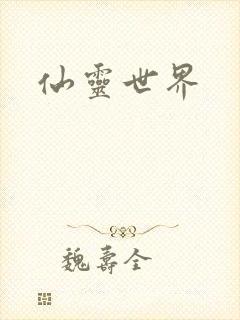 仙靈世界
魏壽全